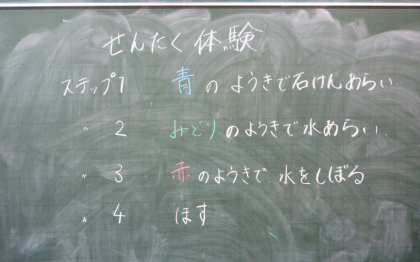 せんたく体験
ステップ1 青のようきで石けんあらい
〃 2 みどりのようきで水あらい
〃 3 赤のようきで水をしぼる
〃 4 ほす